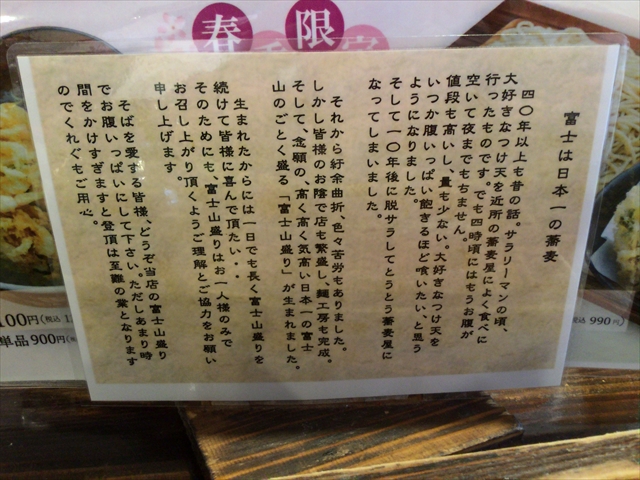 春 限定
富士は日本一の蕎麦
四〇年以上も昔の話。サラリーマンの頃、
大好きなつけ天を近所の蕎麦屋によく食べに
行ったものです。でも四時頃にはもうお腹が
空いて夜までもちません。
値段も高いし、量も少ない。大好きなつけ天を
いつか腹いっぱい飽きるほど喰いたい、と思う
ようになりました。
そして一〇年後に脱サラしてとうとう蕎麦屋に
なってしまいました。
それから紆余曲折、色々苦労もありました。
しかし皆様のお陰で店も繁盛し、麺工房も完成。
そして、念願の、高く高く気高い日本一の富士
山のごとく盛る「富士山盛り」が生まれました。
生まれたからには一日でも長く富士山盛りを
続けて皆様に喜んで頂たい・・
そのためにも、富士山盛りはお一人様のみで
お召し上がり頂くようご理解とご協力をお願い
申し上げます。
そばを愛する皆様、どうぞ当店の富士山盛り
でお腹いっぱいにして下さい。ただしあまり時
間をかけすぎますと登頂は至難の業となります
のでくれぐもご用心。
100円(税込 1
単品 900円(税
税込 990円)